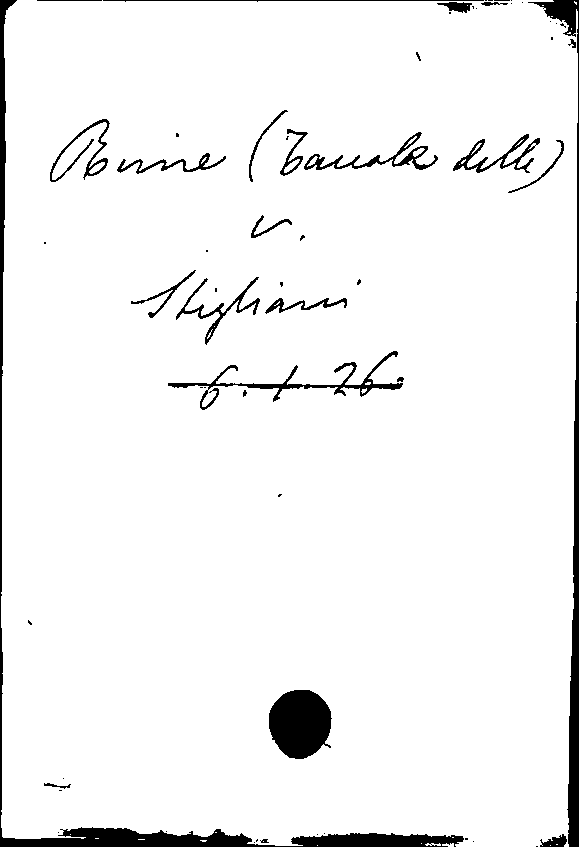 Rime (Tavola delle)
v.
Stigliani
6.1.26.